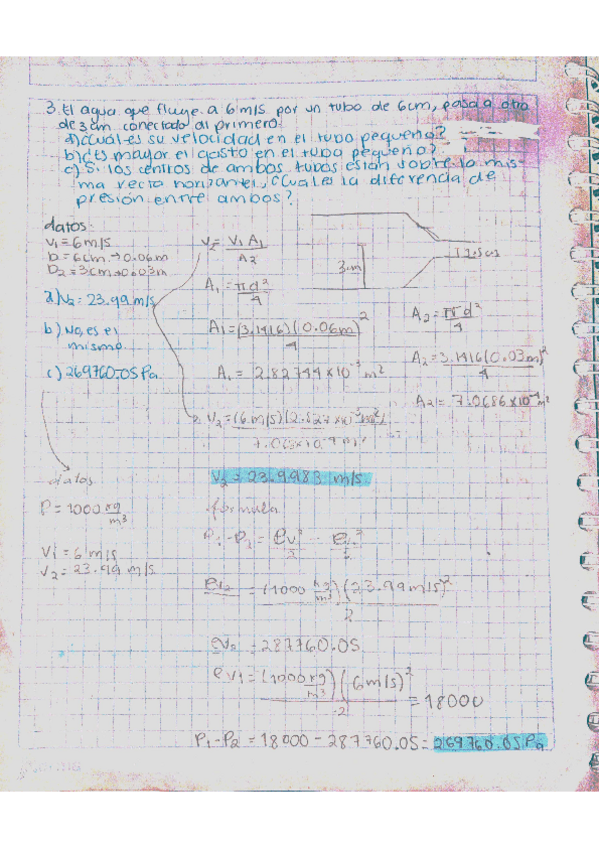 3. El agua que fluye a 6 m/s por un tubo de 6cm, pasa a otro
de 3 cm conectado al primero.
a) ¿Cuál es su velocidad en el tubo pequeño?
b) ¿Es mayor el gasto en el tubo pequeño?
c) Si los centros de ambos tubos están sobre la mis-
ma recta horizantel, ¿Cual es la diferencia de
presión entre ambos?
datos:
V₁ = 6 m/s
D = 6cm → 0.06m
D₂ = 3cm → 0.03m
a) V₂ = 23.99 m/s
b) No, es el
mismo
c) 269760.05 Pa
V₂ = V₁ A₁
A₂
3.m
A₁ = πd²
4
A₁ = (3.1416)(0.06m)²
4
A₁ = 2.82744 x10⁻³ m²
A₂ = πd²
4
A₂ = 3.1416(0.03m)²
4
A₂ = 7.0686 x10⁻⁴ m²
V₂ = (6 m/s)(2.827 x10⁻³ m²)
V₂ = 23.9983 m/s
datos
P = 1000 kg
m³
V₁ = 6 m/s
V₂ = 23.99 m/s
formula
P₁ - P₂ =
2
= (1000 kg/m³)(23.99 m/s)²
2
= 287760.05
ev₁ = (1000 kg/m³)(6 m/s)²
2
= 18000
P₁ - P₂ = 18000 - 287760.05 = 269760.05 Pa